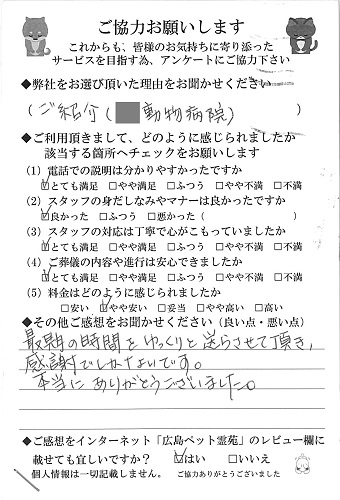 ご協力お願いします
これからも、皆様のお気持ちに寄り添った
サービスを目指す為、アンケートにご協力下さい
◆弊社をお選び頂いた理由をお聞かせください
(ご紹介(動物病院))
◆ご利用頂きまして、どのように感じられましたか
該当する箇所へチェックをお願いします
(1) 電話での説明は分かりやすかったですか
☑とても満足 □やや満足 □ふつう □やや不満 □不満
(2) スタッフの身だしなみやマナーは良かったですか
☑良かった □ふつう □悪かった( )
(3) スタッフの対応は丁寧で心がこもっていましたか
☑とても満足 □やや満足 □ふつう □やや不満 □不満
(4) ご葬儀の内容や進行は安心できましたか
☑とても満足 □やや満足 □ふつう □やや不満 □不満
(5) 料金はどのように感じられましたか
□安い ☑やや安い □妥当 □やや高い □高い
◆その他ご感想をお聞かせください(良い点・悪い点)
最期の時間をゆっくりと送らさせて頂き、
感謝でしかないです。
本当にありがとうございました。
◆ご感想をインターネット「広島ペット霊苑」のレビュー欄に
載せても宜しいですか? ☑はい □いいえ
個人情報は一切記載しません。 ご協力ありがとうございました